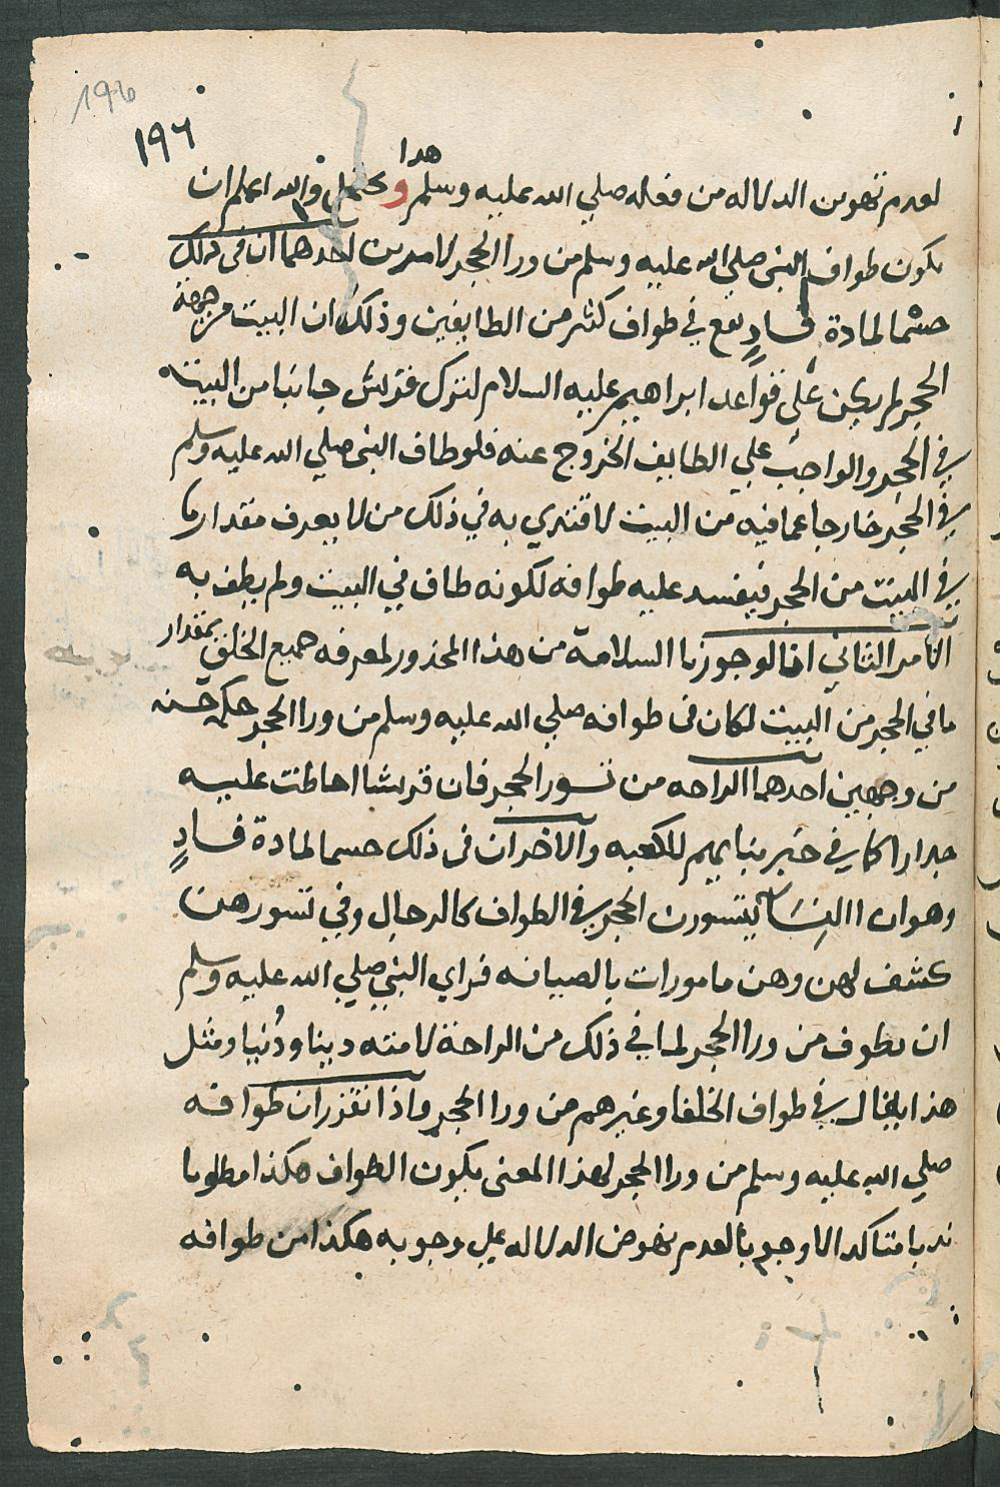 196
١٩٦
هدا
لعدم نهوض الدلاله من فعله صلي الله عليه وسلم ويحتمل والله اعلم ان
يكون طواف النبي صلي الله عليه وسلم من ورا الحجر لامرين احدهما ان في ذلك
حسما لمادة فسادٍ يقع في طواف كثير من الطايفين وذلك ان البيت من جهة
الحجر لم يكن علي قواعد ابراهيم عليه السلام لترك قريش جانبا من البيت
في الحجر والواجب علي الطايف الخروج عنه فلو طاف النبي صلي الله عليه وسلم
في الحجر خارجا عما فيه من البيت لاقتدي به في ذلك من لا يعرف مقدار ما
في البيت من الحجر فيفسد عليه طوافه لكونه طاف في البيت ولم يطف به
الامر الثاني انا لو جوزنا السلامة من هذا المحذور لمعرفه جميع الخلق بمقدار
ما في الحجر من البيت لكان في طوافه صلي الله عليه وسلم من ورا الحجر حكم حسنه
من وجهين احدهما الراحه من تسور الحجر فان قريشا احاطت عليه
جدارا كما في خبر بنايهم للكعبه والاخر ان في ذلك حسما لمادة فسادٍ
وهو ان النسا يتسورن الحجر في الطواف كالرجال وفي تسورهن
كشف لهن وهن مامورات بالصيانه فراي النبي صلي الله عليه وسلم
ان يطوف من ورا الحجر لما في ذلك من الراحة لامته دينا ودُنيا ومثل
هذا يقال في طواف الخلفا وغيرهم من ورا الحجر واذا تقرر ان طوافه
صلي الله عليه وسلم من ورا الحجر لهذا المعني يكون الطواف هكذا مطلوبا
ندبا متاكدا لا وجوبا لعدم نهوض الدلاله علي وجوبه هكذا من طوافه